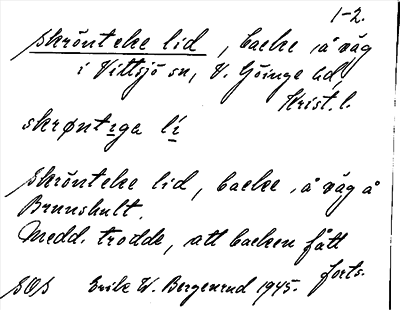 1-2.
skrönteke lid, backe å väg
i Vittsjö sn, V. Göinge hd,
Krist. l.
skrøntıga lí
skrönteke lid, backe å väg å
Brunshult.
Medd. trodde, att backen fått
forts.
SOS Erik W. Bergenrud 1945.